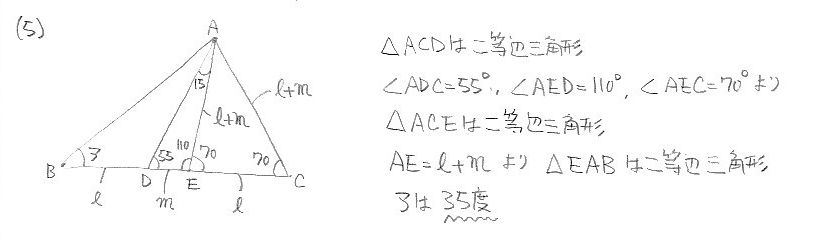 (5)
A
15
l+m
l+m
B
3
55
110
70
70
D
E
C
l
m
l
△ACDは二等辺三角形
∠ADC=55°, ∠AED=110°, ∠AEC=70°より
△ACEは二等辺三角形
AE=l+mより △EABは二等辺三角形
3は35度